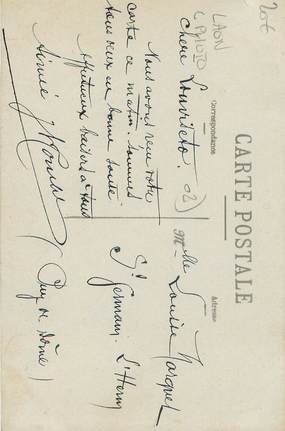 20€
LAON
C. PHOTO
02)
CARTE POSTALE
Correspondance
Adresse
Chère Louisette.
Nous avons reçu votre
carte ce matin sommes
tous deux en bonne santé
affectueux baisers à tous
Aimée
Mlle Louise Marquet
St Germain. L'Herm
(Puy de Dôme)